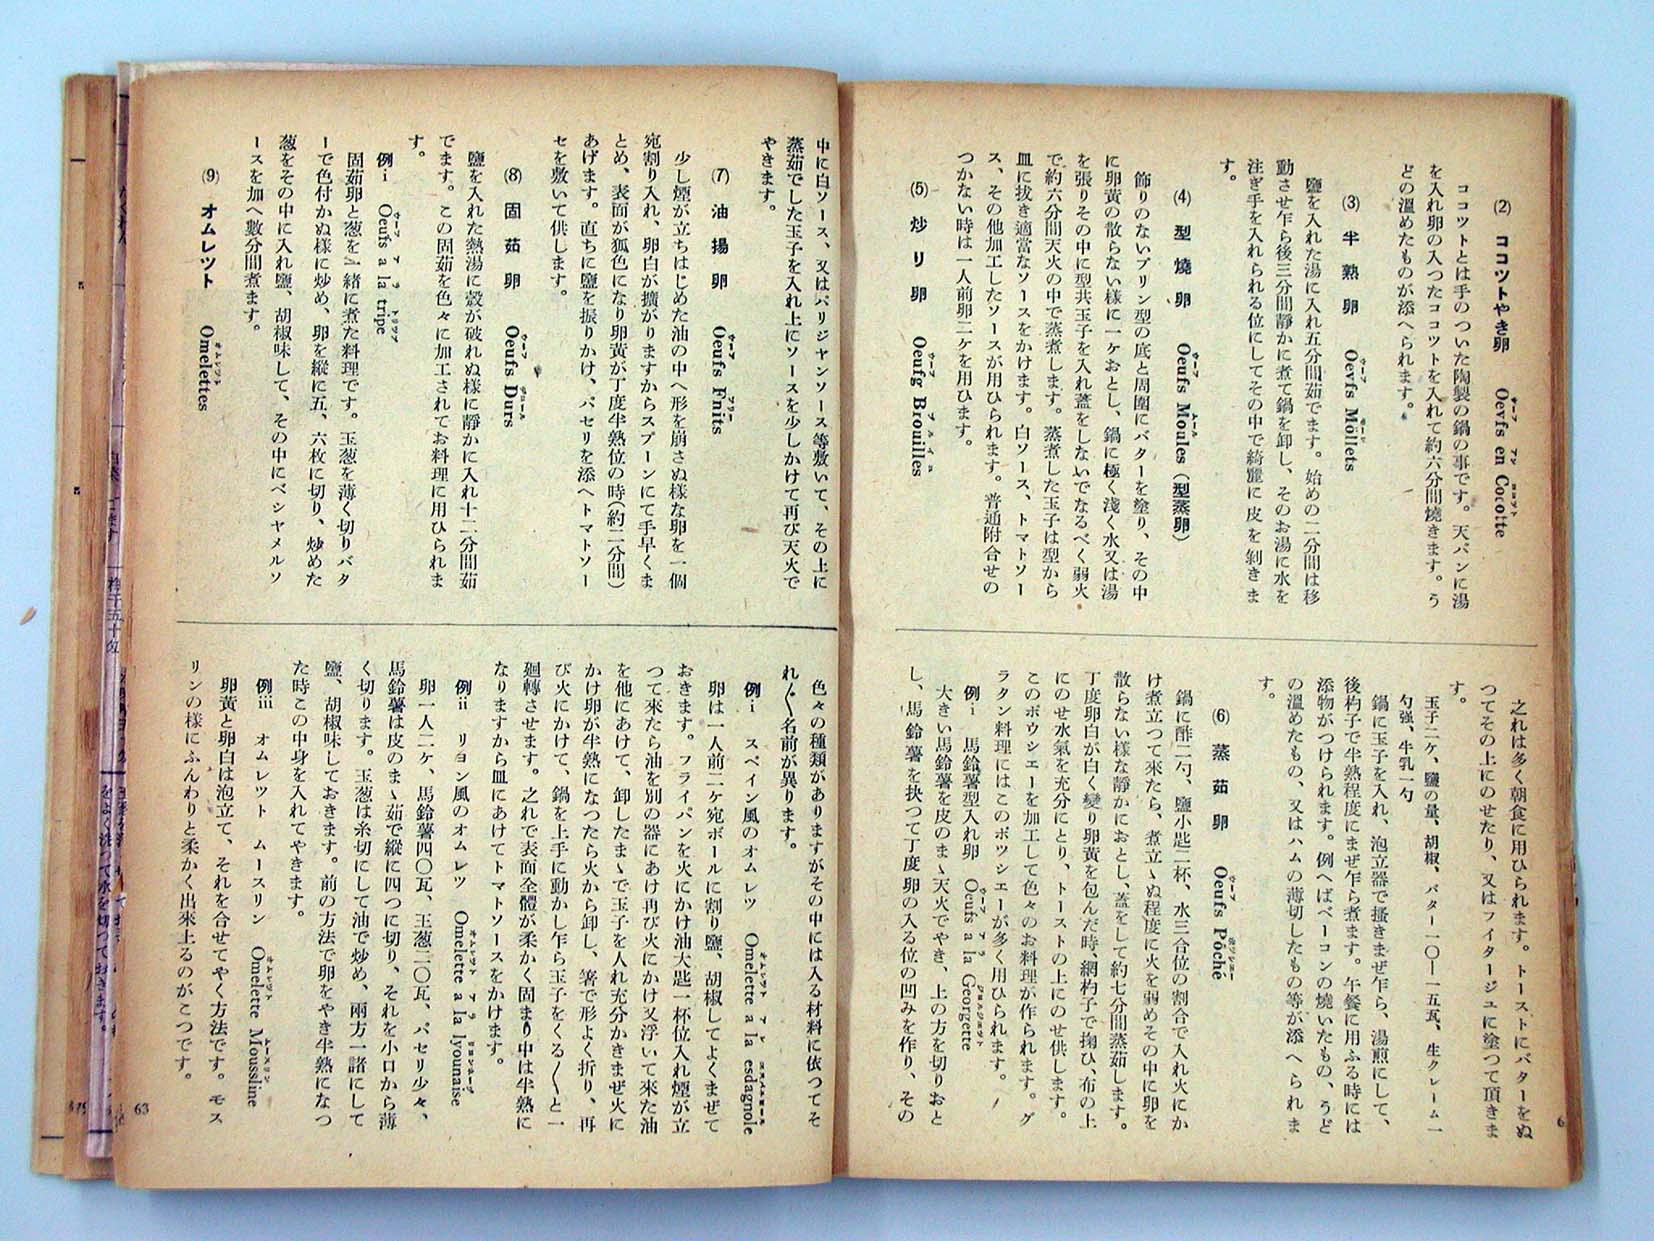 (2) ココツトやき卵 Oevfs en Cocotte
ココツトとは手のついた陶製の鍋の事です。天パンに湯
を入れ卵の入つたココツトを入れて約六分間燒きます。う
どの溫めたものが添へられます。
(3) 半熟卵 Oevfs Möllets
鹽を入れた湯に入れ五分間茹でます。始めの二分間は移
動させ乍ら後三分間靜かに煮て鍋を卸し、そのお湯に水を
注ぎ手を入れられる位にしてその中で綺麗に皮を剝きま
す。
(4) 型燒卵 Oeufs Moules (型蒸卵)
飾りのないプリン型の底と周圍にバターを塗り、その中
に卵黃の散らない樣に一ヶおとし、鍋に極く淺く水又は湯
を張りその中に型共玉子を入れ蓋をしないでなるべく弱火
で約六分間天火の中で蒸煮します。蒸煮した玉子は型から
皿に拔き適當なソースをかけます。白ソース、トマトソー
ス、その他加工したソースが用ひられます。普通附合せの
つかない時は一人前卵二ヶを用ひます。
(5) 炒り卵 Oeufg Brouilles
之れは多く朝食に用ひられます。トーストにバターをぬ
つてその上にのせたり、又はフイタージユに塗つて頂きま
す。
玉子二ヶ、鹽の量、胡椒、バター一〇—一五瓦、生クレーム一
勺强、牛乳一勺
鍋に玉子を入れ、泡立器で搔きまぜ乍ら、湯煎にして、
後杓子で半熟程度にまぜ乍ら煮ます。午餐に用ふる時には
添物がつけられます。例へばベーコンの燒いたもの、うど
の溫めたもの、又はハムの薄切したもの等が添へられま
す。
(6) 蒸茹卵 Oeufs Pöché
鍋に酢二勺、鹽小匙二杯、水三合位の割合で入れ火にか
け煮立つて來たら、煮立ゝぬ程度に火を弱めその中に卵を
散らない樣な靜かにおとし、蓋をして約七分間蒸茹します。
丁度卵白が白く變り卵黃を包んだ時、網杓子で掬ひ、布の上
にのせ水氣を充分にとり、トーストの上にのせ供します。
このポウシエーを加工して色々のお料理が作られます。グ
ラタン料理にはこのポツシエーが多く用ひられます。
例i 馬鈴薯型入れ卵 Oeufs a la Georgette
大きい馬鈴薯を皮のまゝ天火でやき、上の方を切りおと
し、馬鈴薯を抉つて丁度卵の入る位の凹みを作り、その
6
中に白ソース、又はパリジヤンソース等敷いて、その上に
蒸茹でした玉子を入れ上にソースを少しかけて再び天火で
やきます。
(7) 油揚卵 Oeufs Fnits
少し煙が立ちはじめた油の中へ形を崩さぬ樣な卵を一個
宛割り入れ、卵白が擴がりますからスプーンにて手早くま
とめ、表面が狐色になり卵黃が丁度半熟位の時(約二分間)
あげます。直ちに鹽を振りかけ、パセリを添へトマトソー
セを敷いて供します。
(8) 固茹卵 Oeufs Durs
鹽を入れた熱湯に殼が破れぬ樣に靜かに入れ十二分間茹
でます。この固茹を色々に加工されてお料理に用ひられま
す。
例i Oeufs a la tripe
固茹卵と葱を一緖に煮た料理です。玉葱を薄く切りバタ
ーで色付かぬ樣に炒め、卵を縱に五、六枚に切り、炒めた
葱をその中に入れ鹽、胡椒味して、その中にベシヤメルソ
ースを加へ數分間煮ます。
(9) オムレツト Omelettes
色々の種類がありますがその中には入る材料に依つてそ
れ〲名前が異ります。
例i スペイン風のオムレツ Omelette a la esdagnole
卵は一人前二ヶ宛ボールに割り鹽、胡椒してよくまぜて
おきます。フライパンを火にかけ油大匙一杯位入れ煙が立
つて來たら油を別の器にあけ再び火にかけ又浮いて來た油
を他にあけて、卸したまゝで玉子を入れ充分かきまぜ火に
かけ卵が半熟になつたら火から卸し、箸で形よく折り、再
び火にかけて、鍋を上手に動かし乍ら玉子をくる〱と一
廻轉させます。之れで表面全體が柔かく固まり中は半熟に
なりますから皿にあけてトマトソースをかけます。
例ii リヨン風のオムレツ Omelette a la lyounaise
卵一人二ヶ、馬鈴薯四〇瓦、玉葱二〇瓦、パセリ少々、
馬鈴薯は皮のまゝ茹で縱に四つに切り、それを小口から薄
く切ります。玉葱は糸切にして油で炒め、兩方一諸にして
鹽、胡椒味しておきます。前の方法で卵をやき半熟になつ
た時この中身を入れてやきます。
例iii オムレツト ムースリン Omelette Moussline
卵黃と卵白は泡立て、それを合せてやく方法です。モス
リンの樣にふんわりと柔かく出來上るのがこつです。
63
をよく洗つて水を切つておきます。